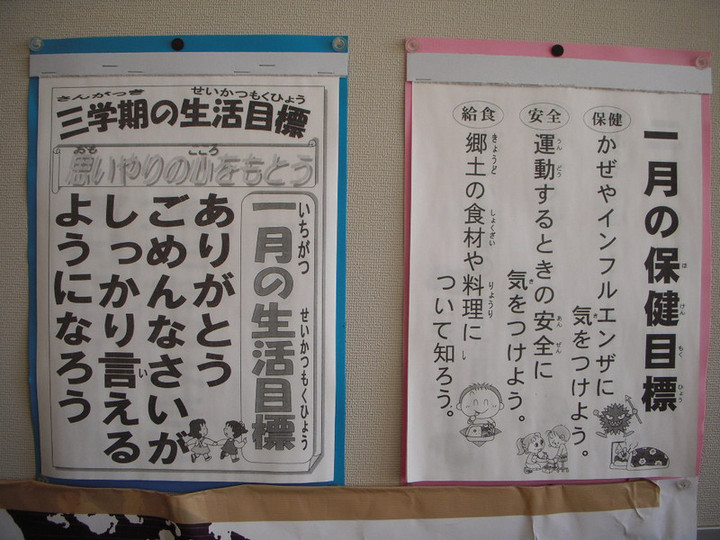 さんがっき せいかつもくひょう
三学期の生活目標
おも こころ
思いやりの心をもとう
いちがつ せいかつもくひょう
一月の生活目標
ありがとう
ごめんなさいが
しっかり言える
い
ようになろう
一月の保健目標
ほ けん もく ひょう
保健
かぜやインフルエンザに
気をつけよう。
き
安全
運動するときの安全に
うん どう あん ぜん
気をつけよう。
き
給食
郷土の食材や料理に
きょうど しょくざい りょうり
ついて知ろう。
し